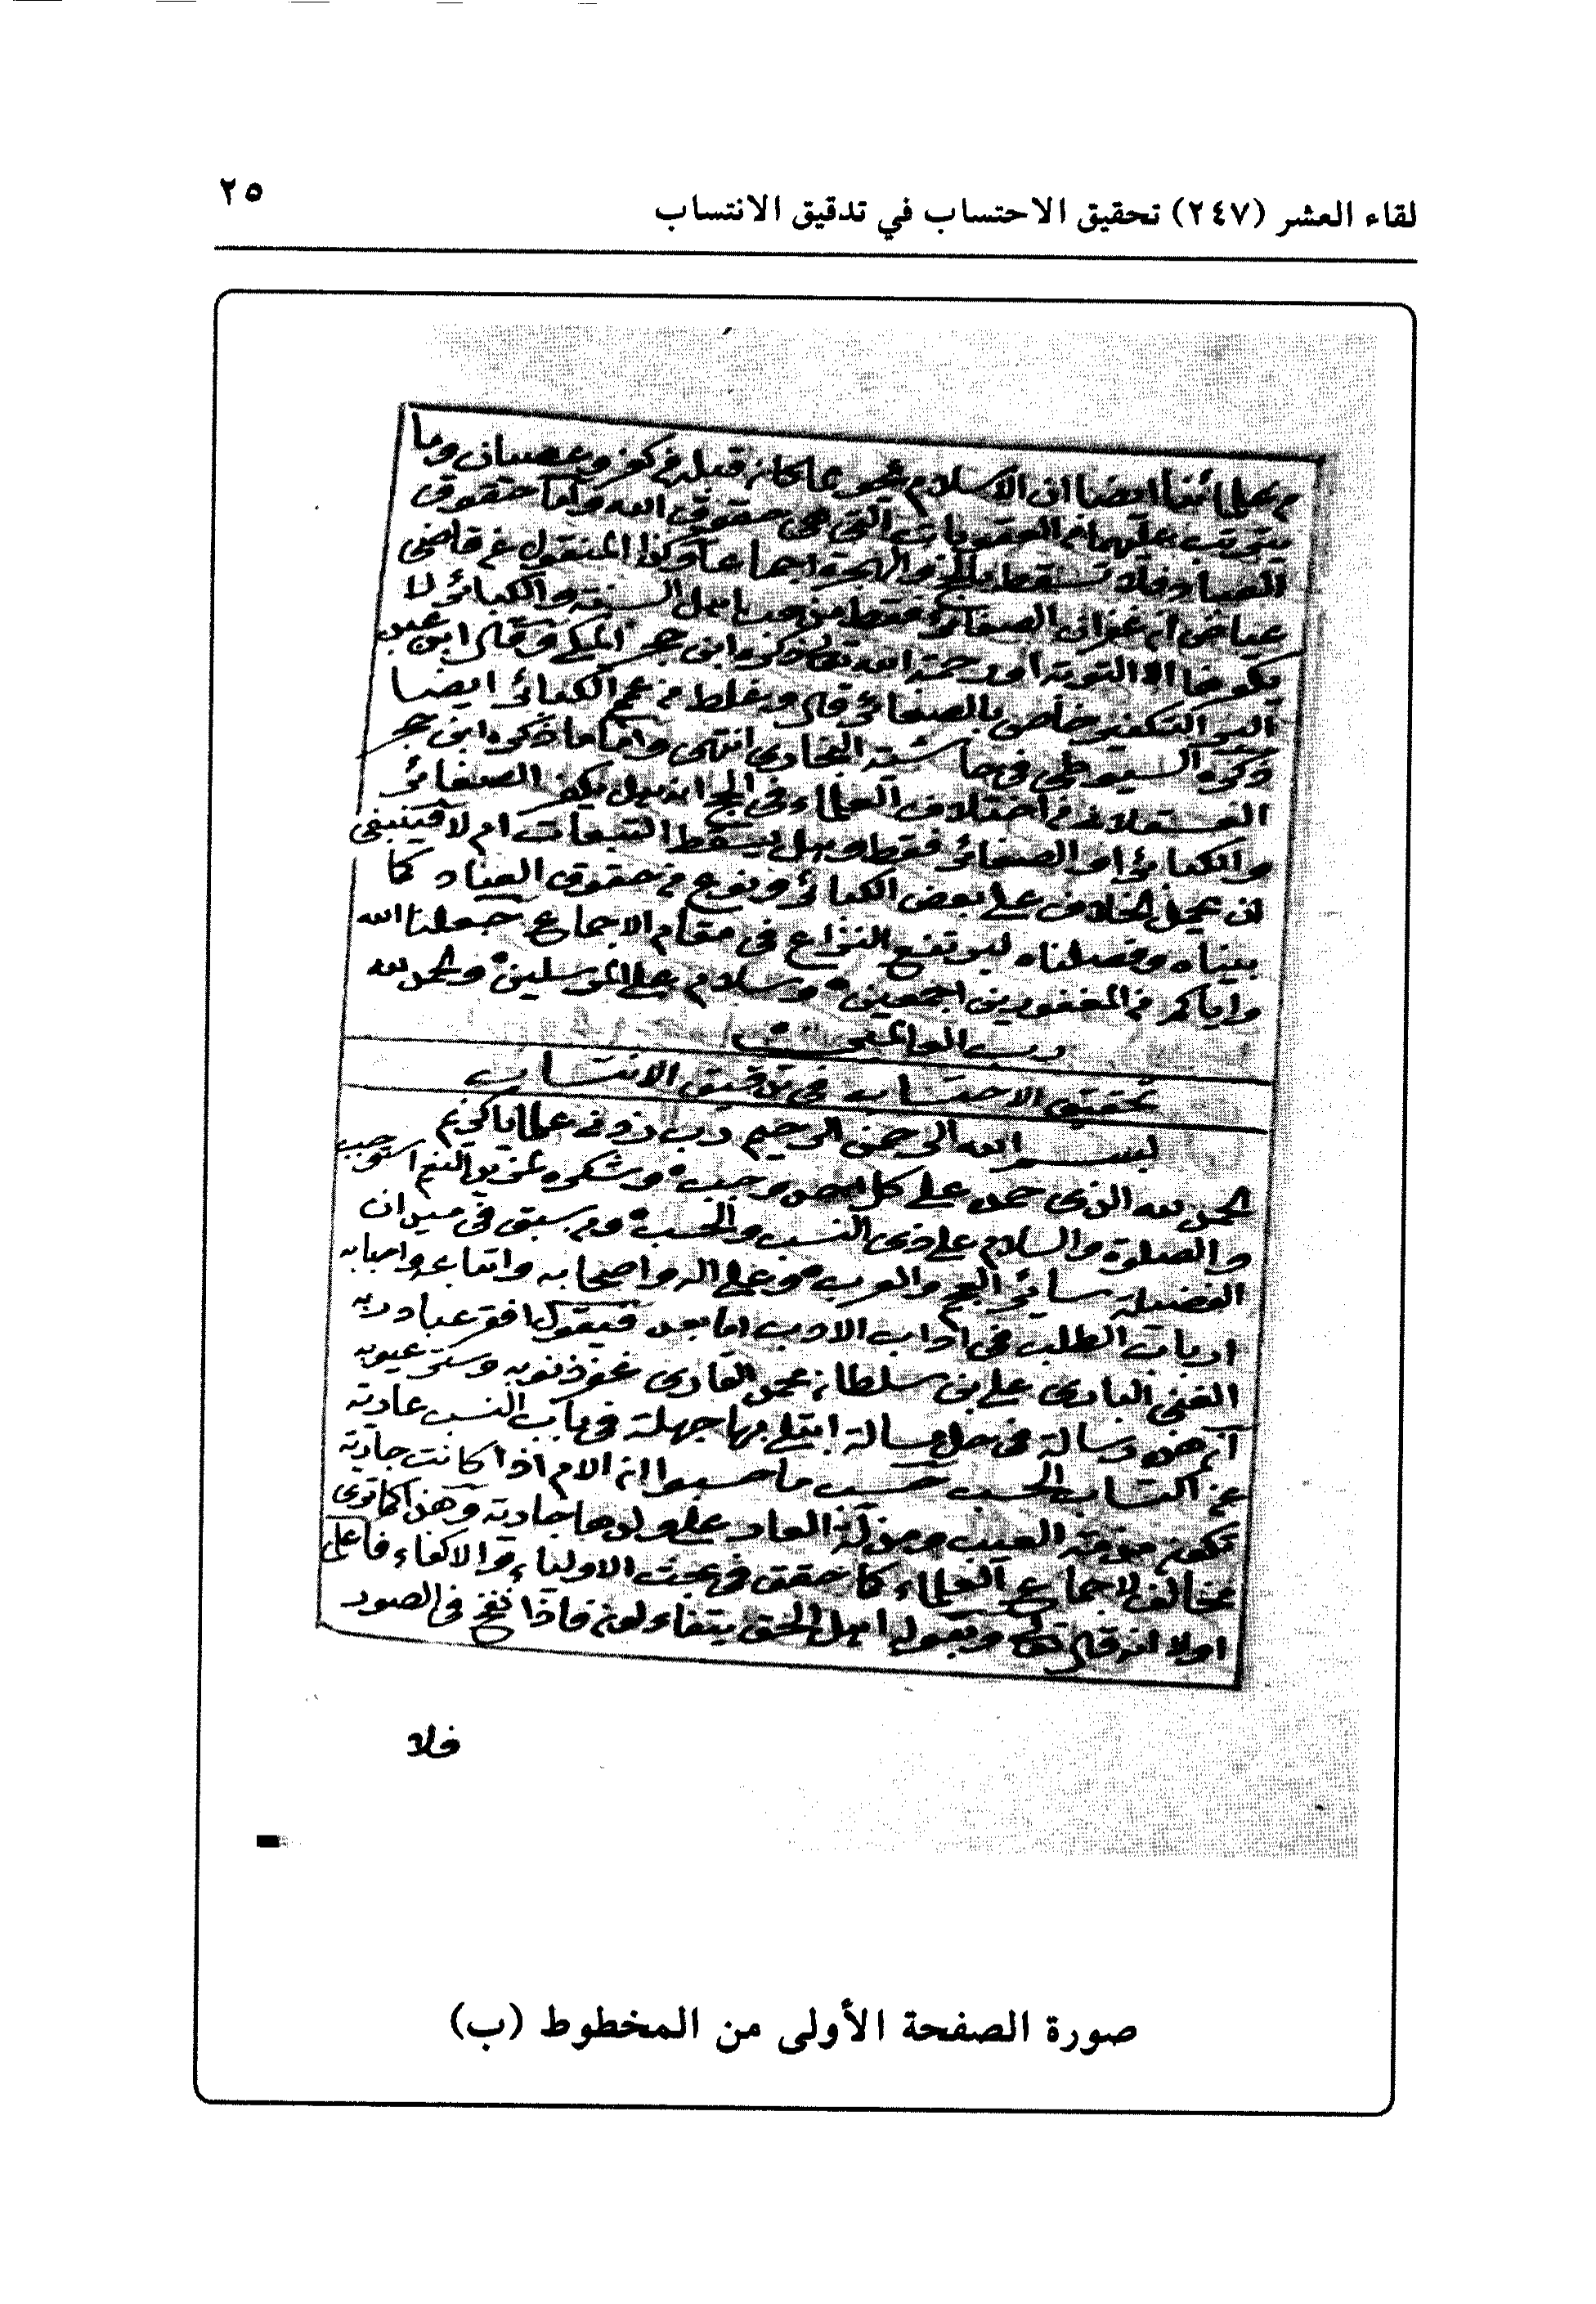 لقاء العشر (٢٤٧) تحقيق الاحتساب في تدقيق الانتساب
٢٥
من علمائنا ايضا ان الاسلام يمحو ما كان قبله من كفر وعصيان وما
يترتب عليهما من العقوبات التي هي حقوق الله واما حقوق
العباد فلا تسقط بالحج والهجرة اجماعا وكذا المنقول عن قاضي
عياض ان غفران الصغائر فقط مذهب اهل السنة والكبائر لا
يكفرها الا التوبة او رحمة الله تعالى ذكره ابن حجر المكي وقال ابن عبد
البر التكفير خاص بالصغائر قال وغلط من عمم الكبائر ايضا
ذكره السيوطي في حاشية البخاري انتهى واما ما ذكره ابن حجر
العسقلاني من اختلاف العلماء في الحج انه هل يكفر الصغائر
والكبائر او الصغائر فقط وهل يسقط التبعات ام لا فينبغي
ان يحمل الخلاف على بعض الكبائر ونوع من حقوق العباد كما
بيناه وفصلناه ليرتفع النزاع في مقام الاجماع جعلنا الله
واياكم من المغفورين اجمعين وسلام على المرسلين والحمد لله
رب العالمين
تحقيق الاحتساب في تدقيق الانتساب
بسم الله الرحمن الرحيم رب زدني علما يا كريم
الحمد لله الذي حمده على كل وجب وشكره النعم استوجب
والصلوة والسلام على ذي النسب والحسب ومن سبق في ميدان
الفضيلة سائر العجم والعرب وعلى اله واصحابه واتباعه واحبابه
ارباب الطلب في اداب الادب اما بعد فيقول افقر عباد ربه
الغني الباري علي بن سلطان محمد القاري غفر ذنوبه وستر عيوبه
ان هذه رسالة في حل مسالة ابتلي بها جهلة في باب النسب عارية
عن اكتساب الحسب حسب ما حسبوا ان الام اذا كانت جارية
تكون موقعة العيب ومنزلة العار على ولدها جارية وهذا كما ترى
مخالف لاجماع العلماء كما حقق في بحث الاولياء والاكفاء فاعلم
اولا انه قال تعالى وبقوله اهل الحق يتفاءلون فاذا نفخ في الصور
فلا
صورة الصفحة الأولى من المخطوط (ب)